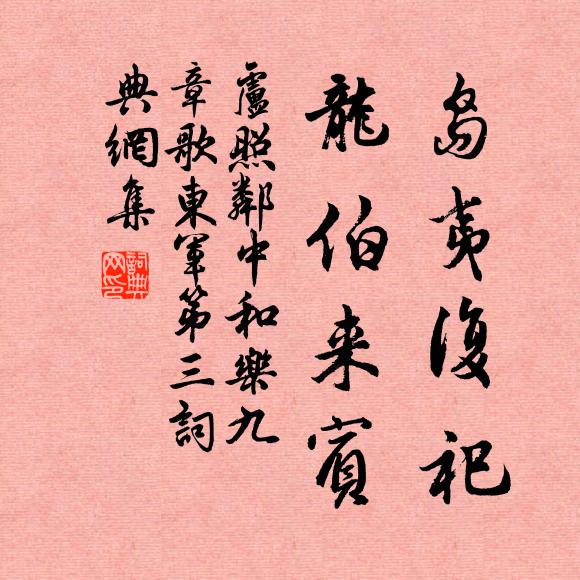 島夷復祀
龍伯来賓
盧照鄰中和樂九
章歌東軍第三詞
典網集
詞典網印